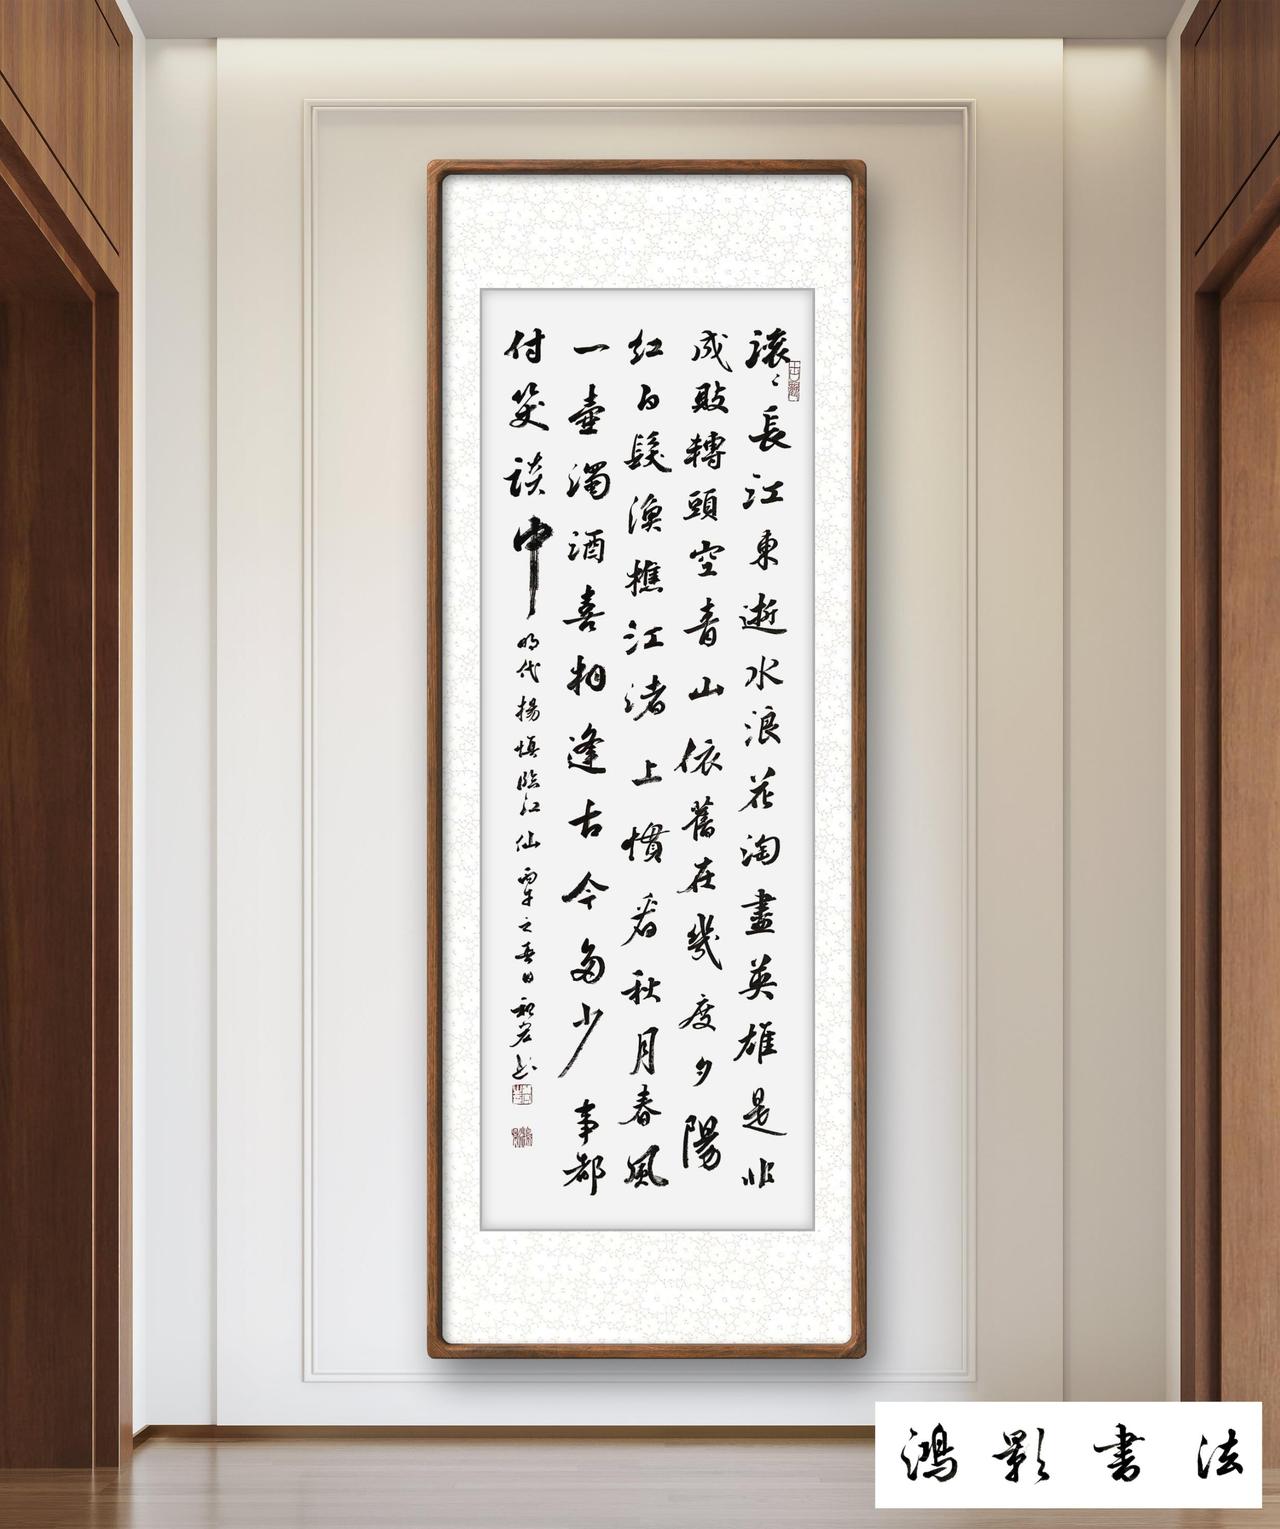 滚〻長江東逝水浪花淘盡英雄是非
成敗轉頭空青山依舊在幾度夕陽
紅白髮漁樵江渚上慣看秋月春風
一壺濁酒喜相逢古今多少事都
付笑談中
明代楊慎臨江仙丙午之春日
鴻影書法